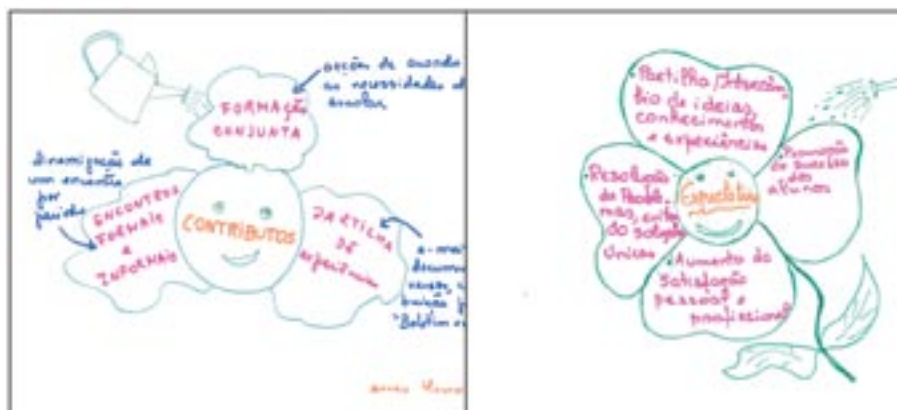 acção de acordo
as necessidades d
escolas
FORMAÇÃO
CONJUNTA
Dinamização de
um encontro
por
período
ENCONTROS
FORMAIS
e
INFORMAIS
CONTRIBUTOS
PARTILHA
DE
experiências
e-mail
"Boletim
Partilha/Intercâm
bio de ideias,
conhecimentos
e experiências
Promoção
do sucesso
dos
alunos
Resolução
de Proble
mas,
únicas
Expectativas
Aumento da
satisfação
pessoal e
profissional